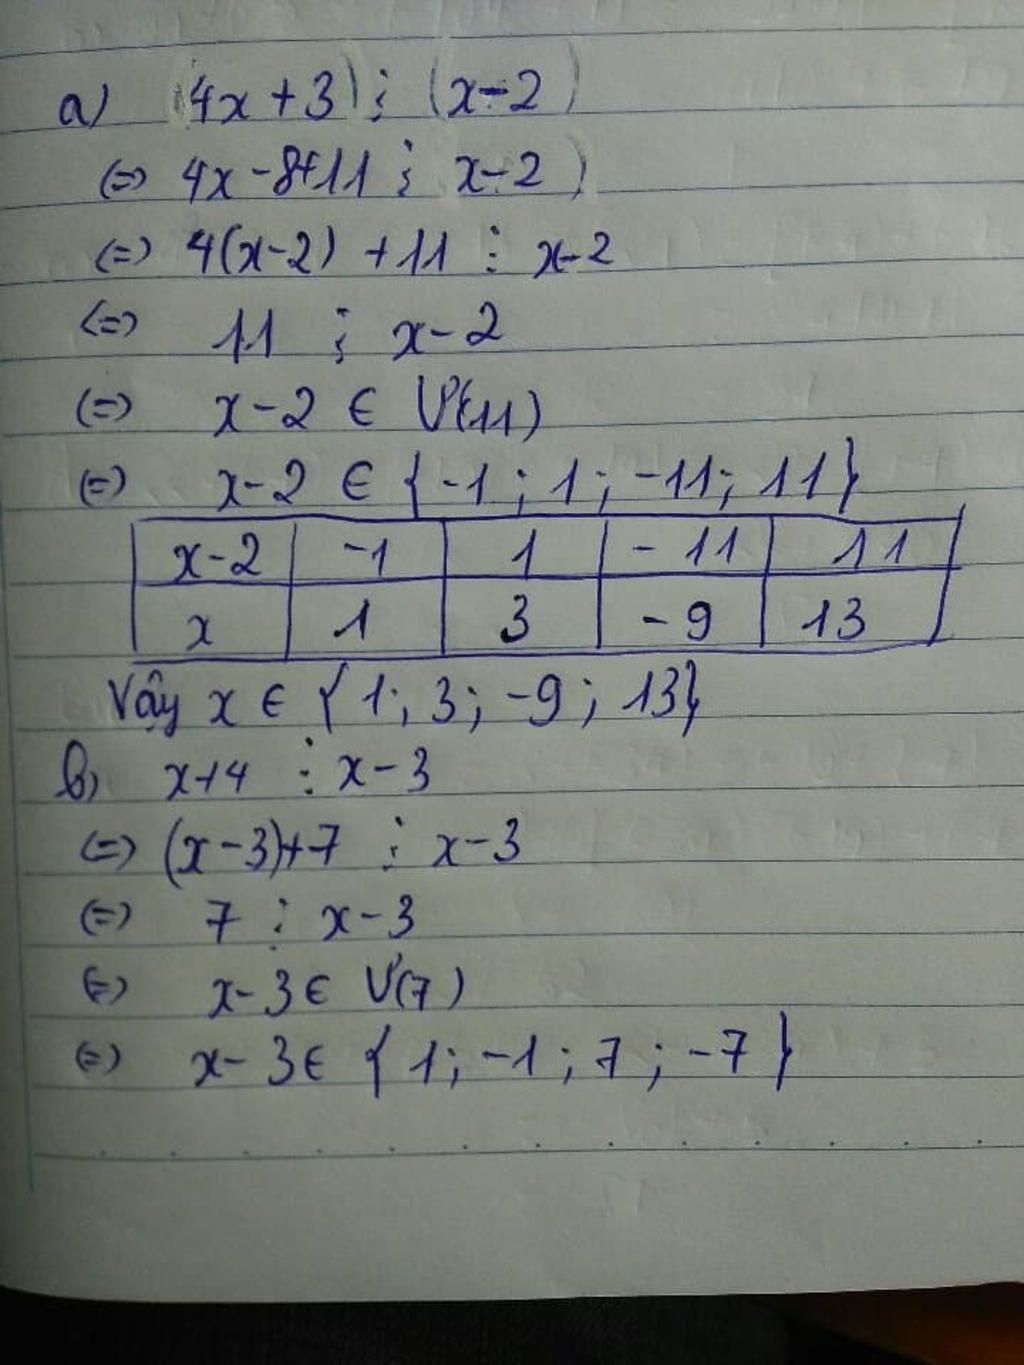 a) (4x+3) ⋮ (x-2)
(=) 4x-8+11 ⋮ x-2)
(=) 4(x-2) +11 ⋮ x-2
(=) 11 ⋮ x-2
(=) x-2 ∈ Ư(11)
(=) x-2 ∈ {-1; 1; -11; 11}
x-2 | -1 | 1 | -11 | 11
x | 1 | 3 | -9 | 13
Vậy x ∈ {1; 3; -9; 13}
b) x+4 ⋮ x-3
(=) (x-3)+7 ⋮ x-3
(=) 7 ⋮ x-3
(=) x-3 ∈ Ư(7)
(=) x-3 ∈ {1; -1; 7; -7}
. . . . . . . . . . . . .